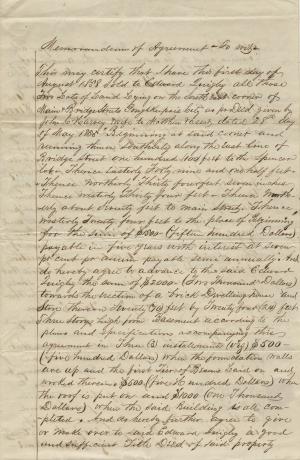 Memorandum of Agreement - To wit
This may certify that I have this first day of
August 1858 Sold to Edward Quigly all those
two Lots of Land lying on the South East corner of
Main & Bridge Streets Poughkeepsie City as per Deed given by
John C. Harvey wife to Mathew dated 28th day
of May 1855 Beginning at said corner and
running thence Southerly along the East line of
Bridge Street one hundred feet to the Spencer
lot. Thence Easterly forty nine and one half feet
Thence Northerly thirty four feet seven inches
Thence westerly thirty four feet Thence North
erly about Seventy feet to main street. Thence
westerly twenty four feet to the place of Beginning
for the sum of $1500 (fifteen hundred Dollars)
payable in five years with interest at seven
pr cent per annum payable semi annually. And
do hereby agree to advance to the said Edward
Quigly the sum of $2000 (Two Thousand Dollars)
towards the erection of a Brick Dwelling house and
Store thereon Seventy (70) feet by Twenty four (24) feet
Three Storys high from Basement according to the
plans and Specification accompanying this
agreement in Three (3) instalments (viz) $500-
(five hundred Dollars) When the foundation walls
are up and the first Tier of Beams Laid on and
worked therein $500 (five hundred Dollars) When
the roof is put on and $1000 (One Thousand
Dollars) When the said Building is all com
pleted. And do hereby further agree to give
or make over to said Edward Quigly a good
and sufficient Title Deed of said property